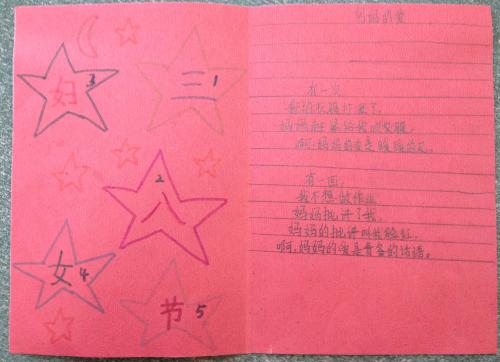 三 1
八 2
妇 3
女 4
节 5
妈妈的爱
有一次,
我的衣服打湿了,
妈妈赶紧给我 衣服,
啊,妈妈的爱是暖暖的
有一回,
我不想做作业
妈妈批评了我,
妈妈的批评叫我脸红,
啊,妈妈的爱是责备的话语。